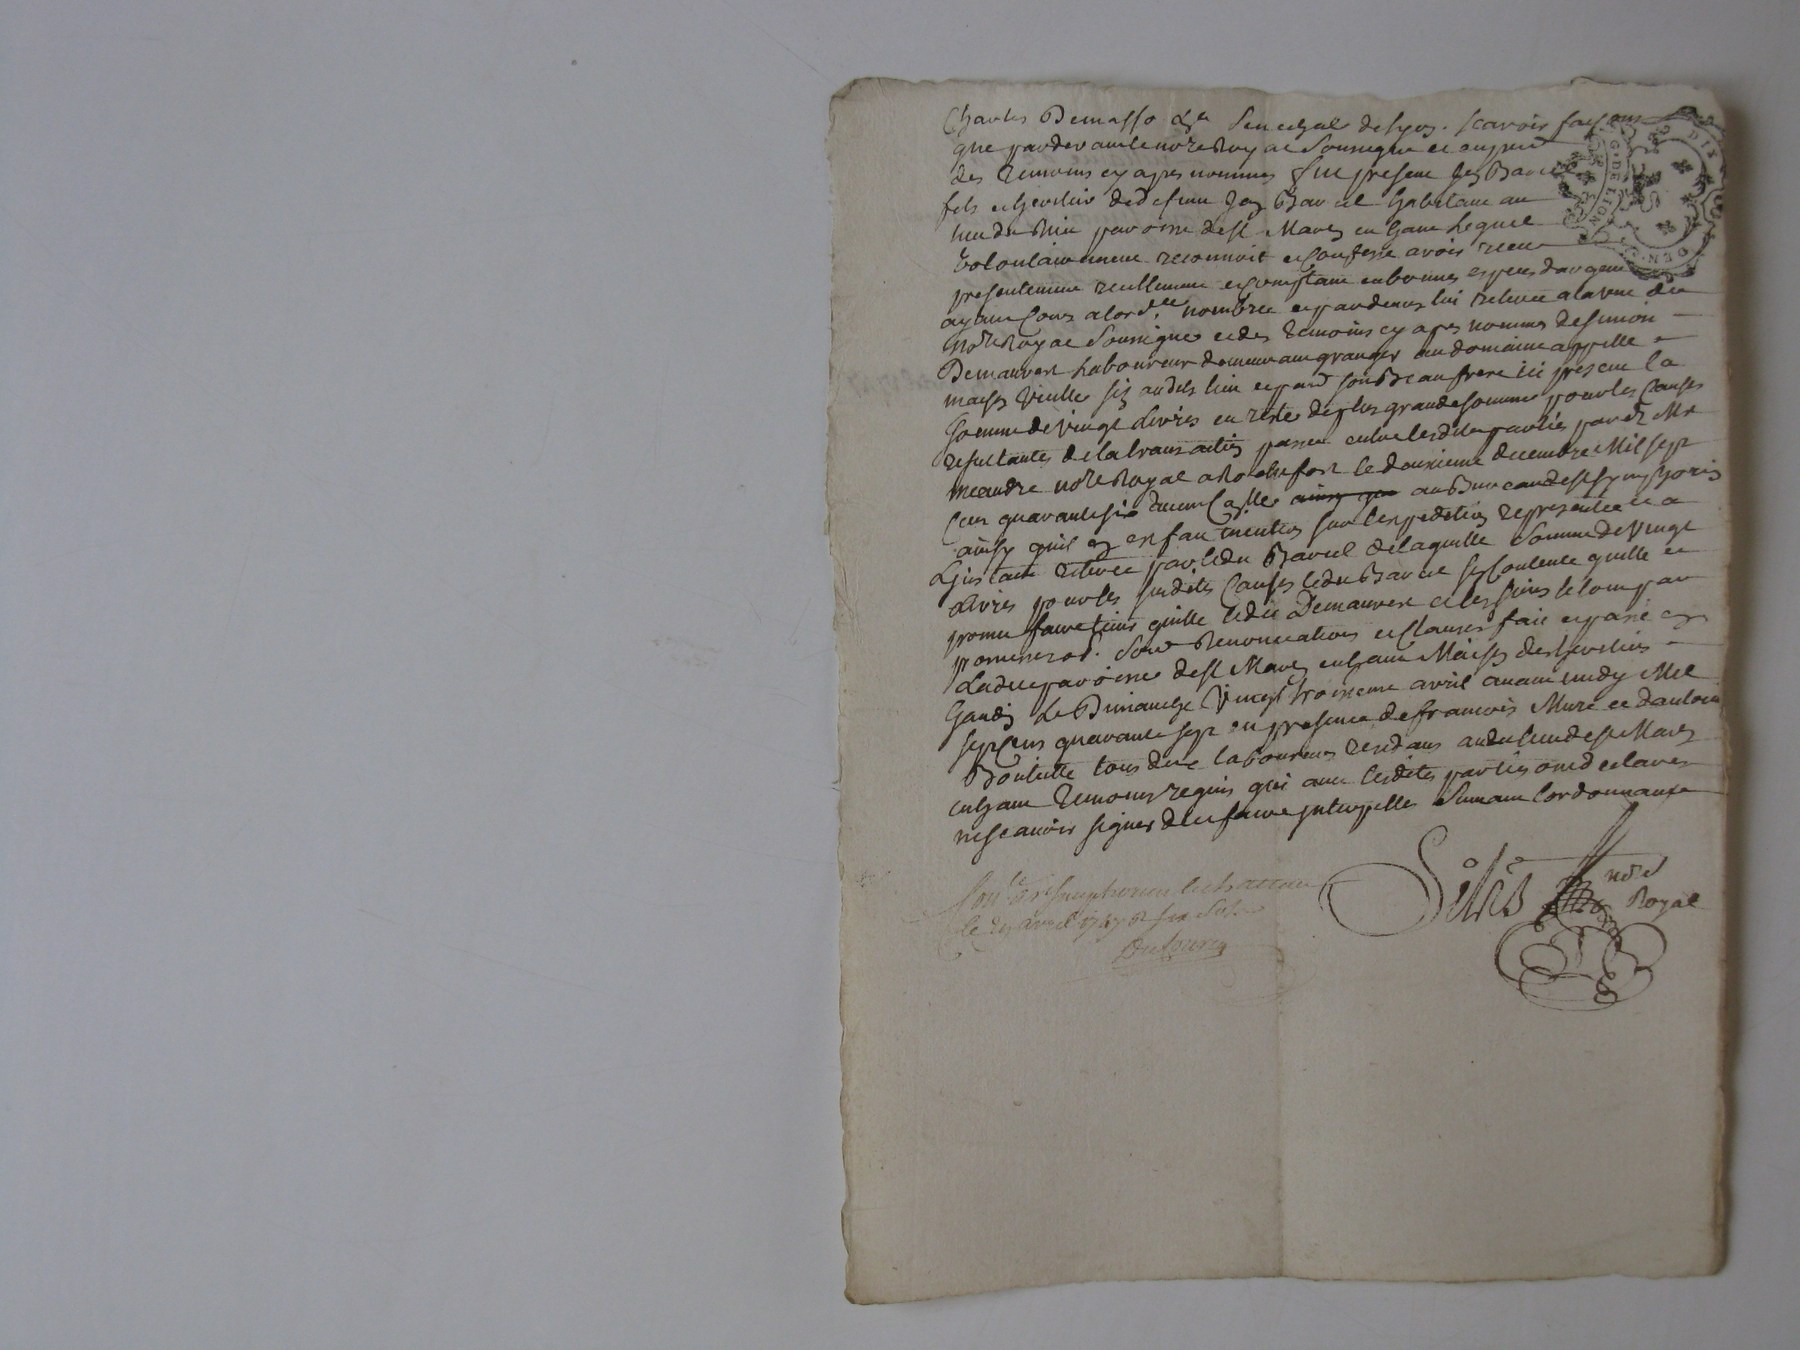 Charles Demasso Ch.er Senechal de Lyon. Scavoir faisons
que pardevant le no.re Royal Soussigné et en pnce
des temoins cy apres nommés fut present Jean Bavie
fils et heritier de defunt Jean Baviel habitant au
lieu du parroisse de St Marcel en haut Lequel
volontairement reconnoit et confesse avoir receu
presentement reellement et comptant en bonnes especes d'argent
ayant cours a lord.ce nombrée et pardevers lui retirée a la vue du
no.re Royal Soussigné et des temoins cy apres nommés de Simon
Demauvert Laboureur demeurant granger au domaine appellé
maison vieille sis audit lieu et par son Beaufrere ici present la
somme de vingt Livres en reste de plus grande somme pour les causes
resultantes de la transaction passée entre lesdites parties par dt Me
no.re Royal a Rochefort le douzieme decembre Mil sept
cent quarante six ainsy que au Bureau de St Synphorien
ainsy quil en est fait mention sur l'expedition representée et a
Linstant retirée par ledit Baviel de laquelle somme de vingt
Livres pour les susdites causes ledit Baviel sest contenté quitte et
promet faire tenir quitte ledit Demauvert et les siens le tout par
promesses ob. Sous Renonciations et clauses fait et passé en
Ladite parroisse de St Marcel en haut Maison des heritiers
Gaudin Le Dimanche vingt troisieme avril avant midy Mil
sept cens quarante sept en presence de francois Muré et d'antoine
Bouteille tous deux laboureurs residans audit lieu de St Marcel
en haut temoins requis qui avec lesdites parties ont declaré
ne scavoir signer de ce faire interpellés Suivant Lordonnance
no.re
Royal
Con.lé a St Simphorien le chatteau
le 29 avril 1747 R six Sols
G. DE LION
DIX